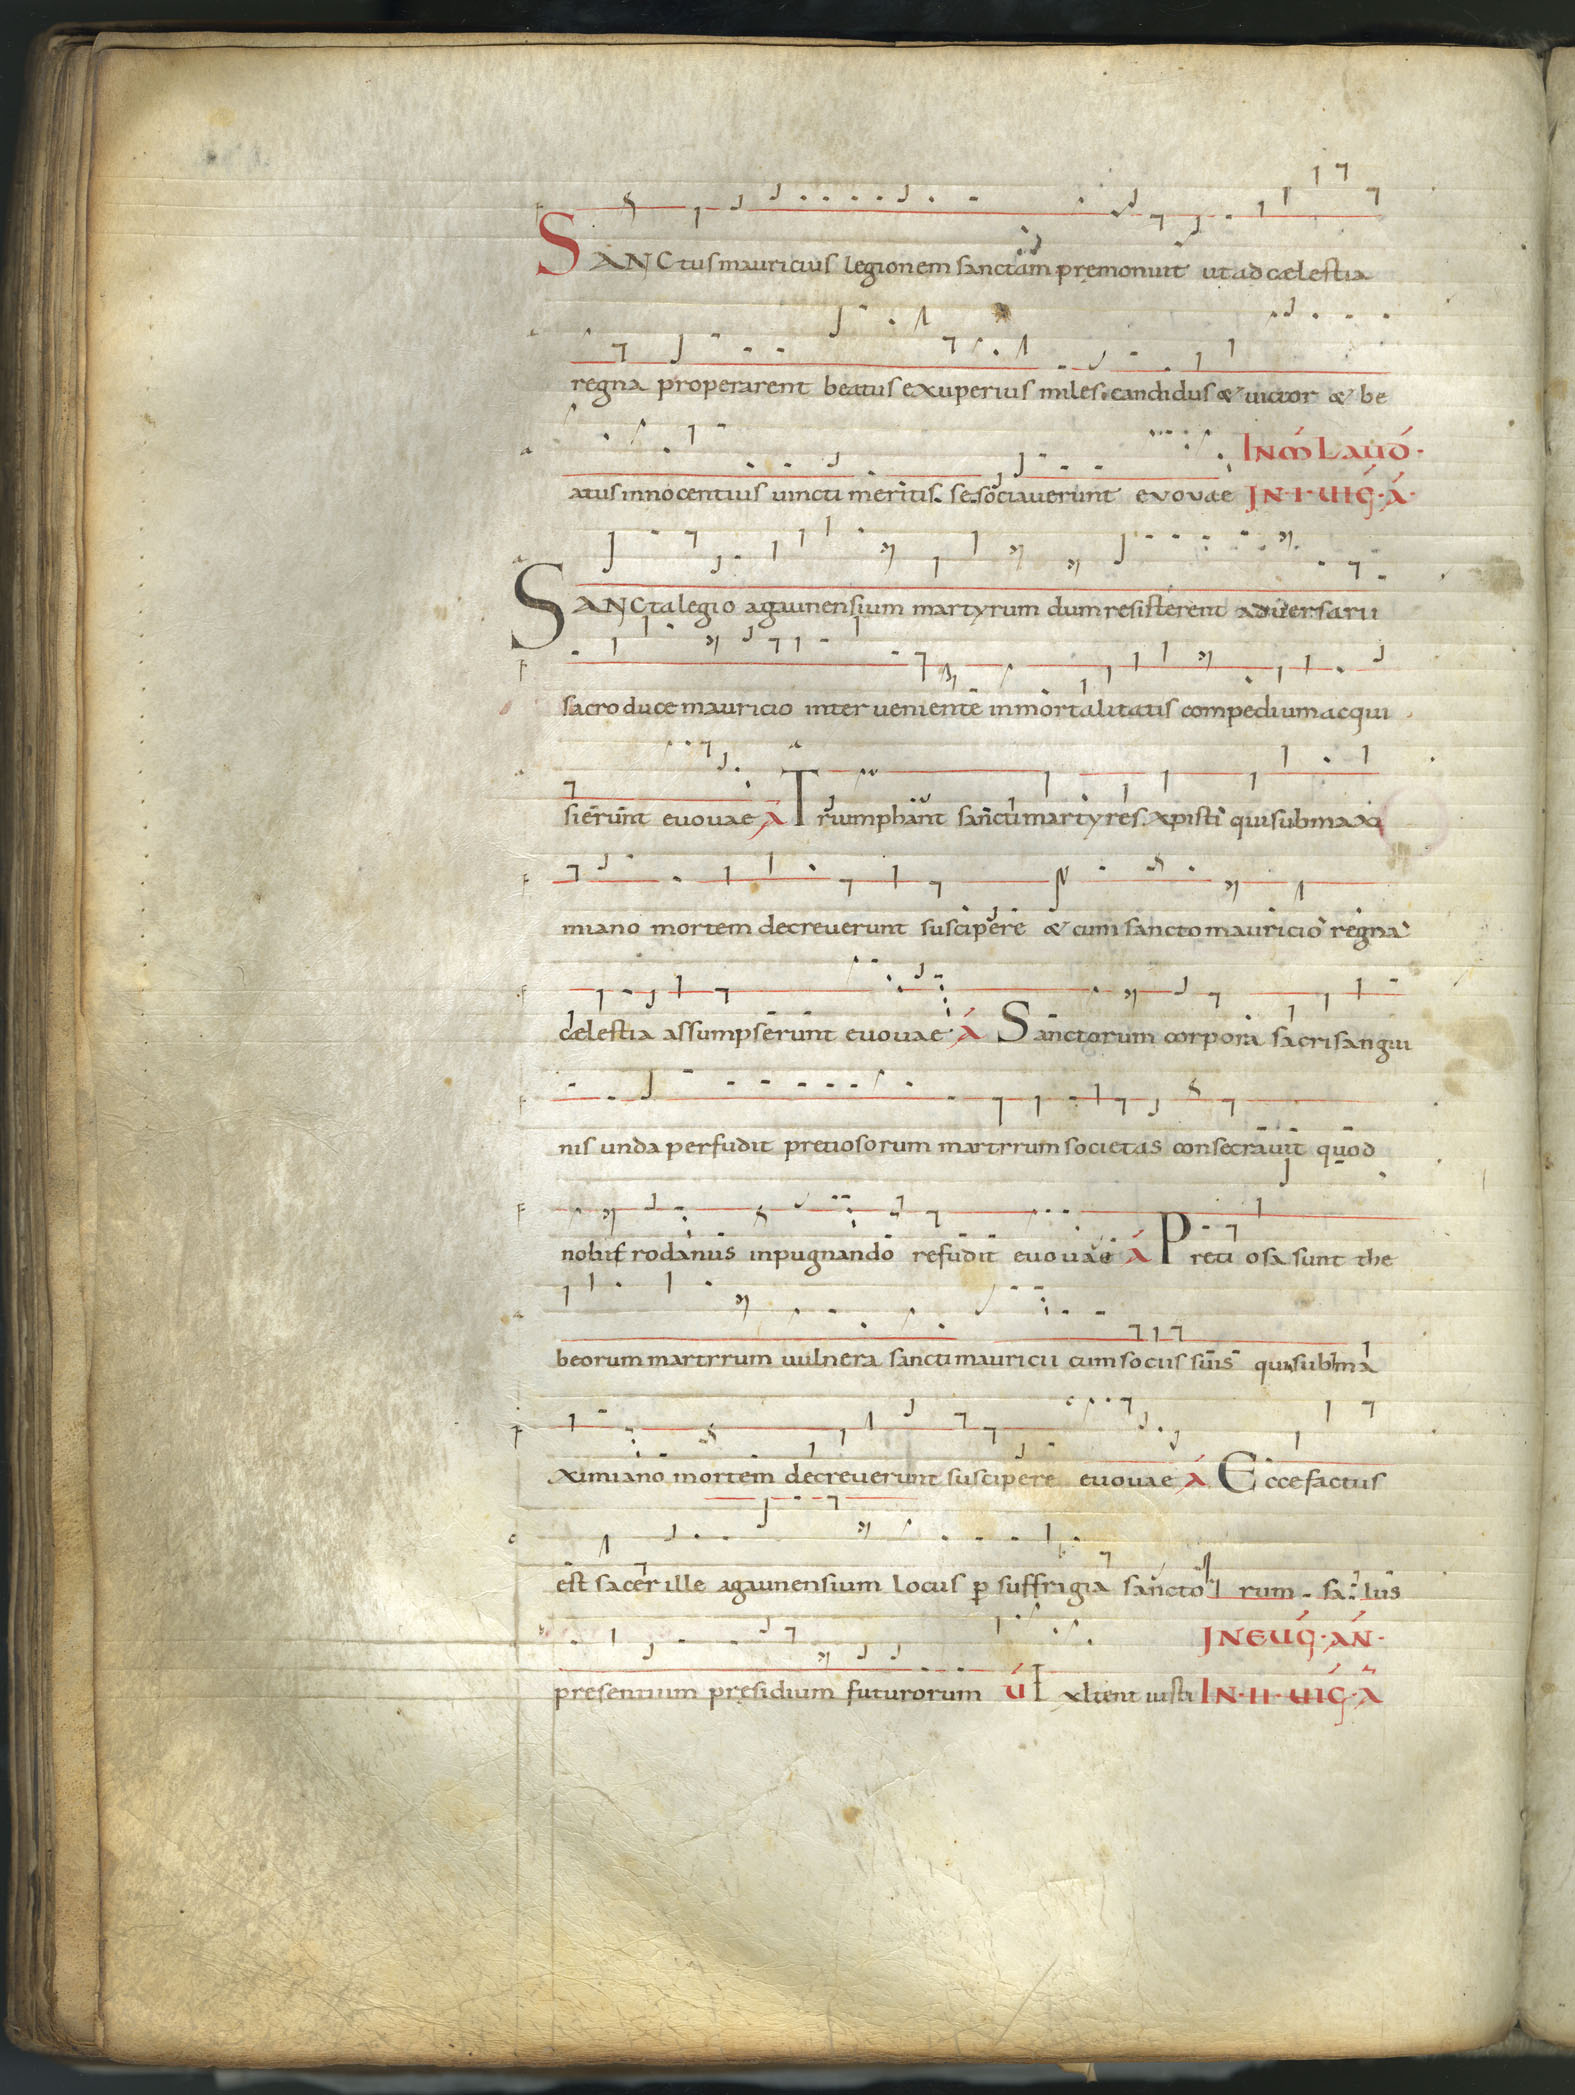 SANCtus mauricius legionem sanctam pręmonuit ut ad cælestia
regna properarent beatus exuperius miles candidus & uictor & be
IN M LAUD·
atus innocentius uincti meritis. se sociauerunt evovae IN·I·UIG·A·
SANCta legio agaunensium martyrum dum resisterent aduersarii
sacro duce mauricio interueniente inmortalitatis compedium acqui
sierunt euouae A Triumphant sancti martyres xpisti qui sub maxi
miano mortem decreuerunt suscipere & cum sancto mauricio regna
cælestia assumpserunt euouae A Sanctorum corpora sacri sangui
nis unda perfudit pretiosorum martrrum societas consecrauit quod
nobis rodanus inpugnando refudit euouae A Preti osa sunt the
beorum martrrum uulnera sancti mauricii cum sociis suis qui sub ma
ximiano mortem decreuerunt suscipere euouae A Ecce factus
est sacer ille agaunensium locus p suffrigia sancto rum salus
IN EUG·AN·
presentium pręsidium futurorum U Exltent iusti IN·II·UIG·A